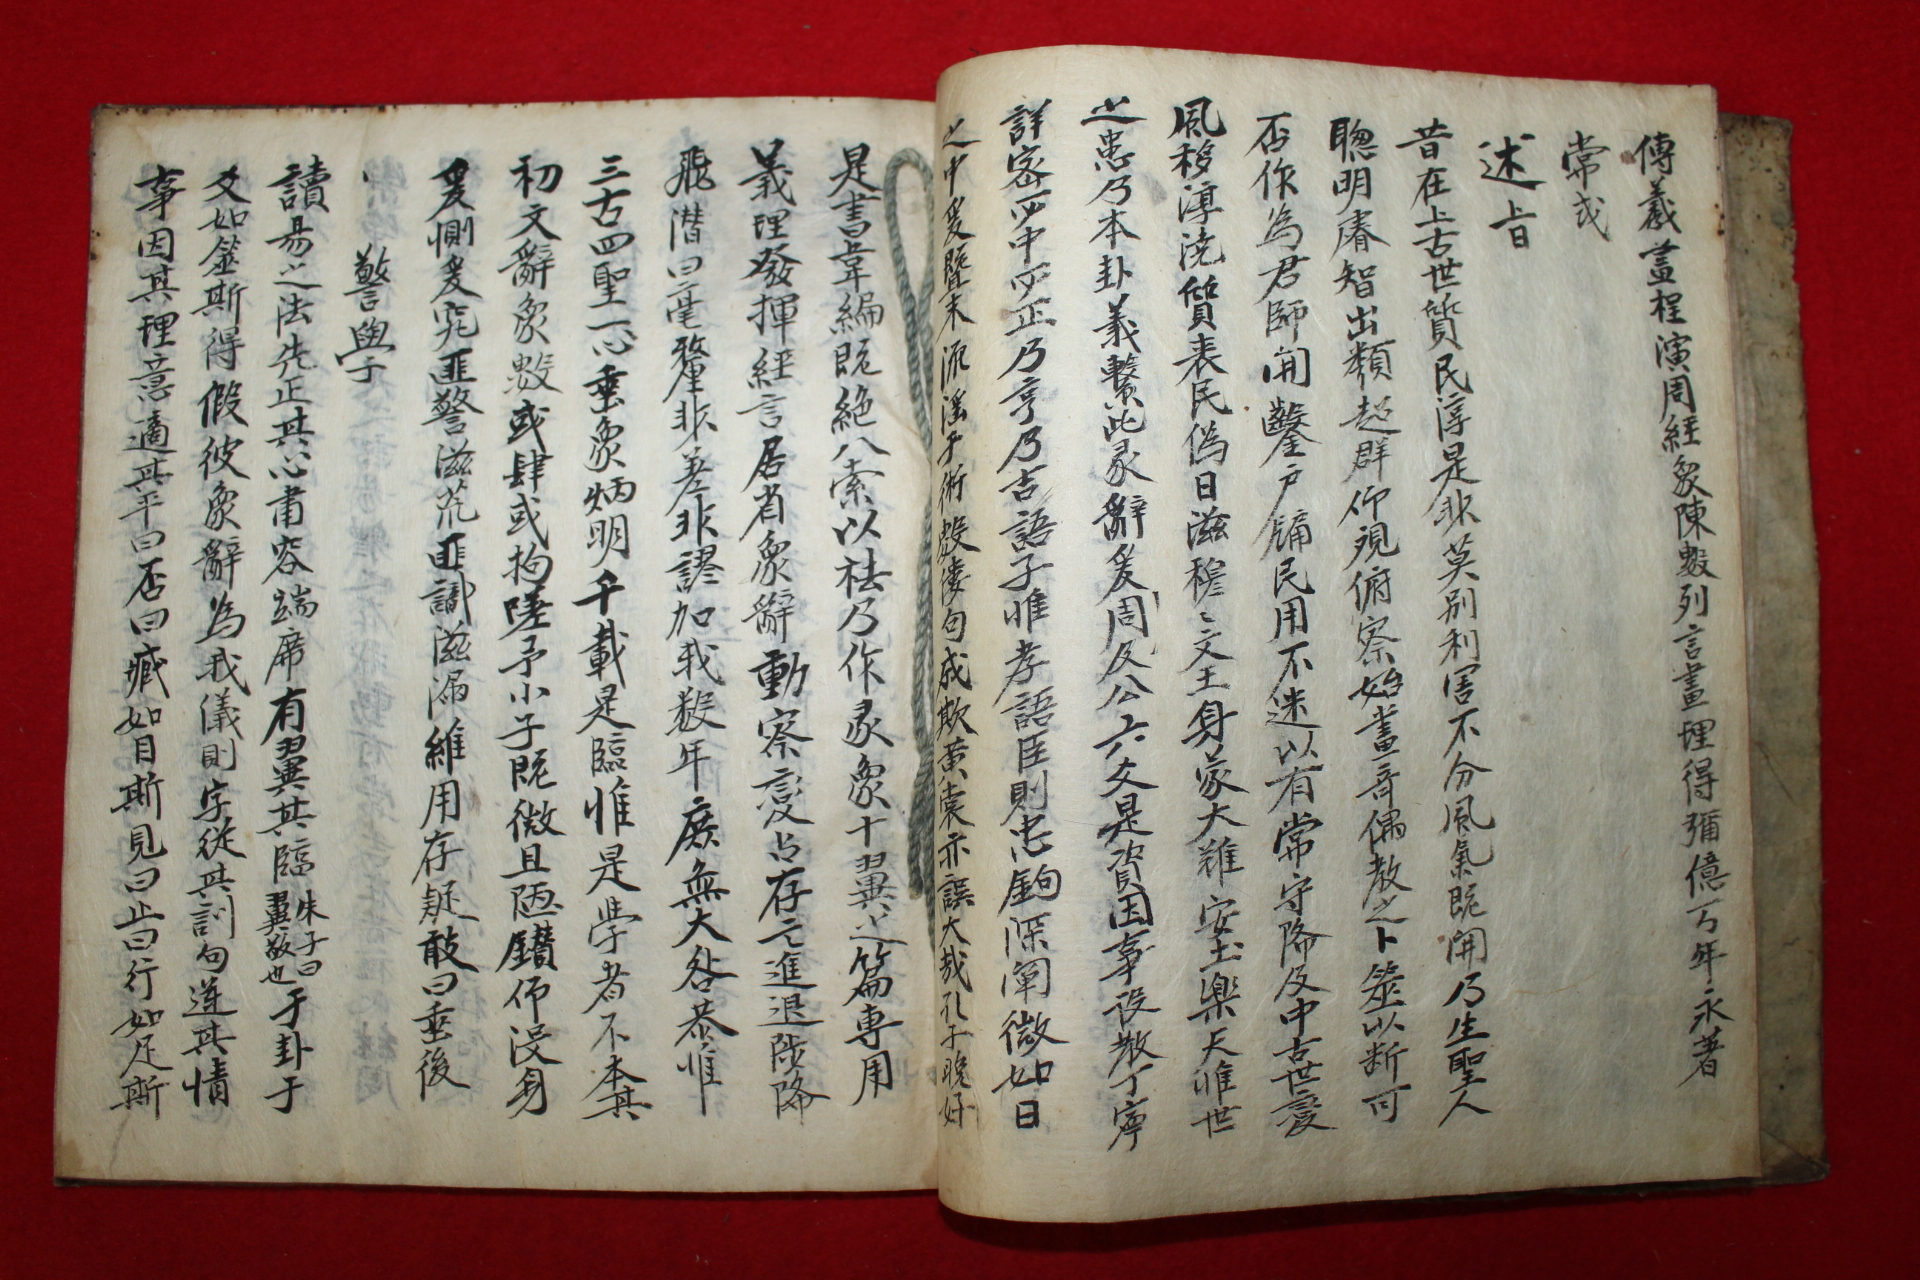 傳羲畫程演周經象陳數列言盡理得彌億万年永著
常式
述旨
昔在上古世質民淳是非莫別利害不分風氣旣開乃生聖人
聰明睿智出類超群仰観俯察始畫奇偶教之卜筮以断可
否作為君師開鑿户牖民用不迷以有常守降及中古世變
風移淳澆質丧民偽日滋穆〻文王身蒙大難安土樂天惟世
之患乃本卦義繫此彖辭爰周及公六爻是資因事设教丁寧
詳密必中必正乃亨乃吉語子惟孝語臣則忠鉤深闡微如日
之中爰曁末流滛于術數僂句成欺黄裳亦誤大哉孔子晚好
是書韋編旣絶八索以祛乃作彖象十翼之篇專用
義理發揮經言居省象辭動察變占存亡進退陟降
飛潛曰毫釐非差非謬加我數年庶無大咎恭惟
三古四聖一心垂象炳明千載是臨惟是學者不本其
初文辭象数或肆或拘嗟予小子旣微且陋鑽仰没身
爰惻爰究匪警滋荒匪識滋漏維用存疑敢曰垂後
警學
讀易之法先正其心肅容端席有翼其臨朱子曰翼敬也于卦于
爻如筮斯得假彼象辭為我儀則字從其訓句逆其情
事因其理意適其平曰否曰臧如目斯見曰止曰行如足斯